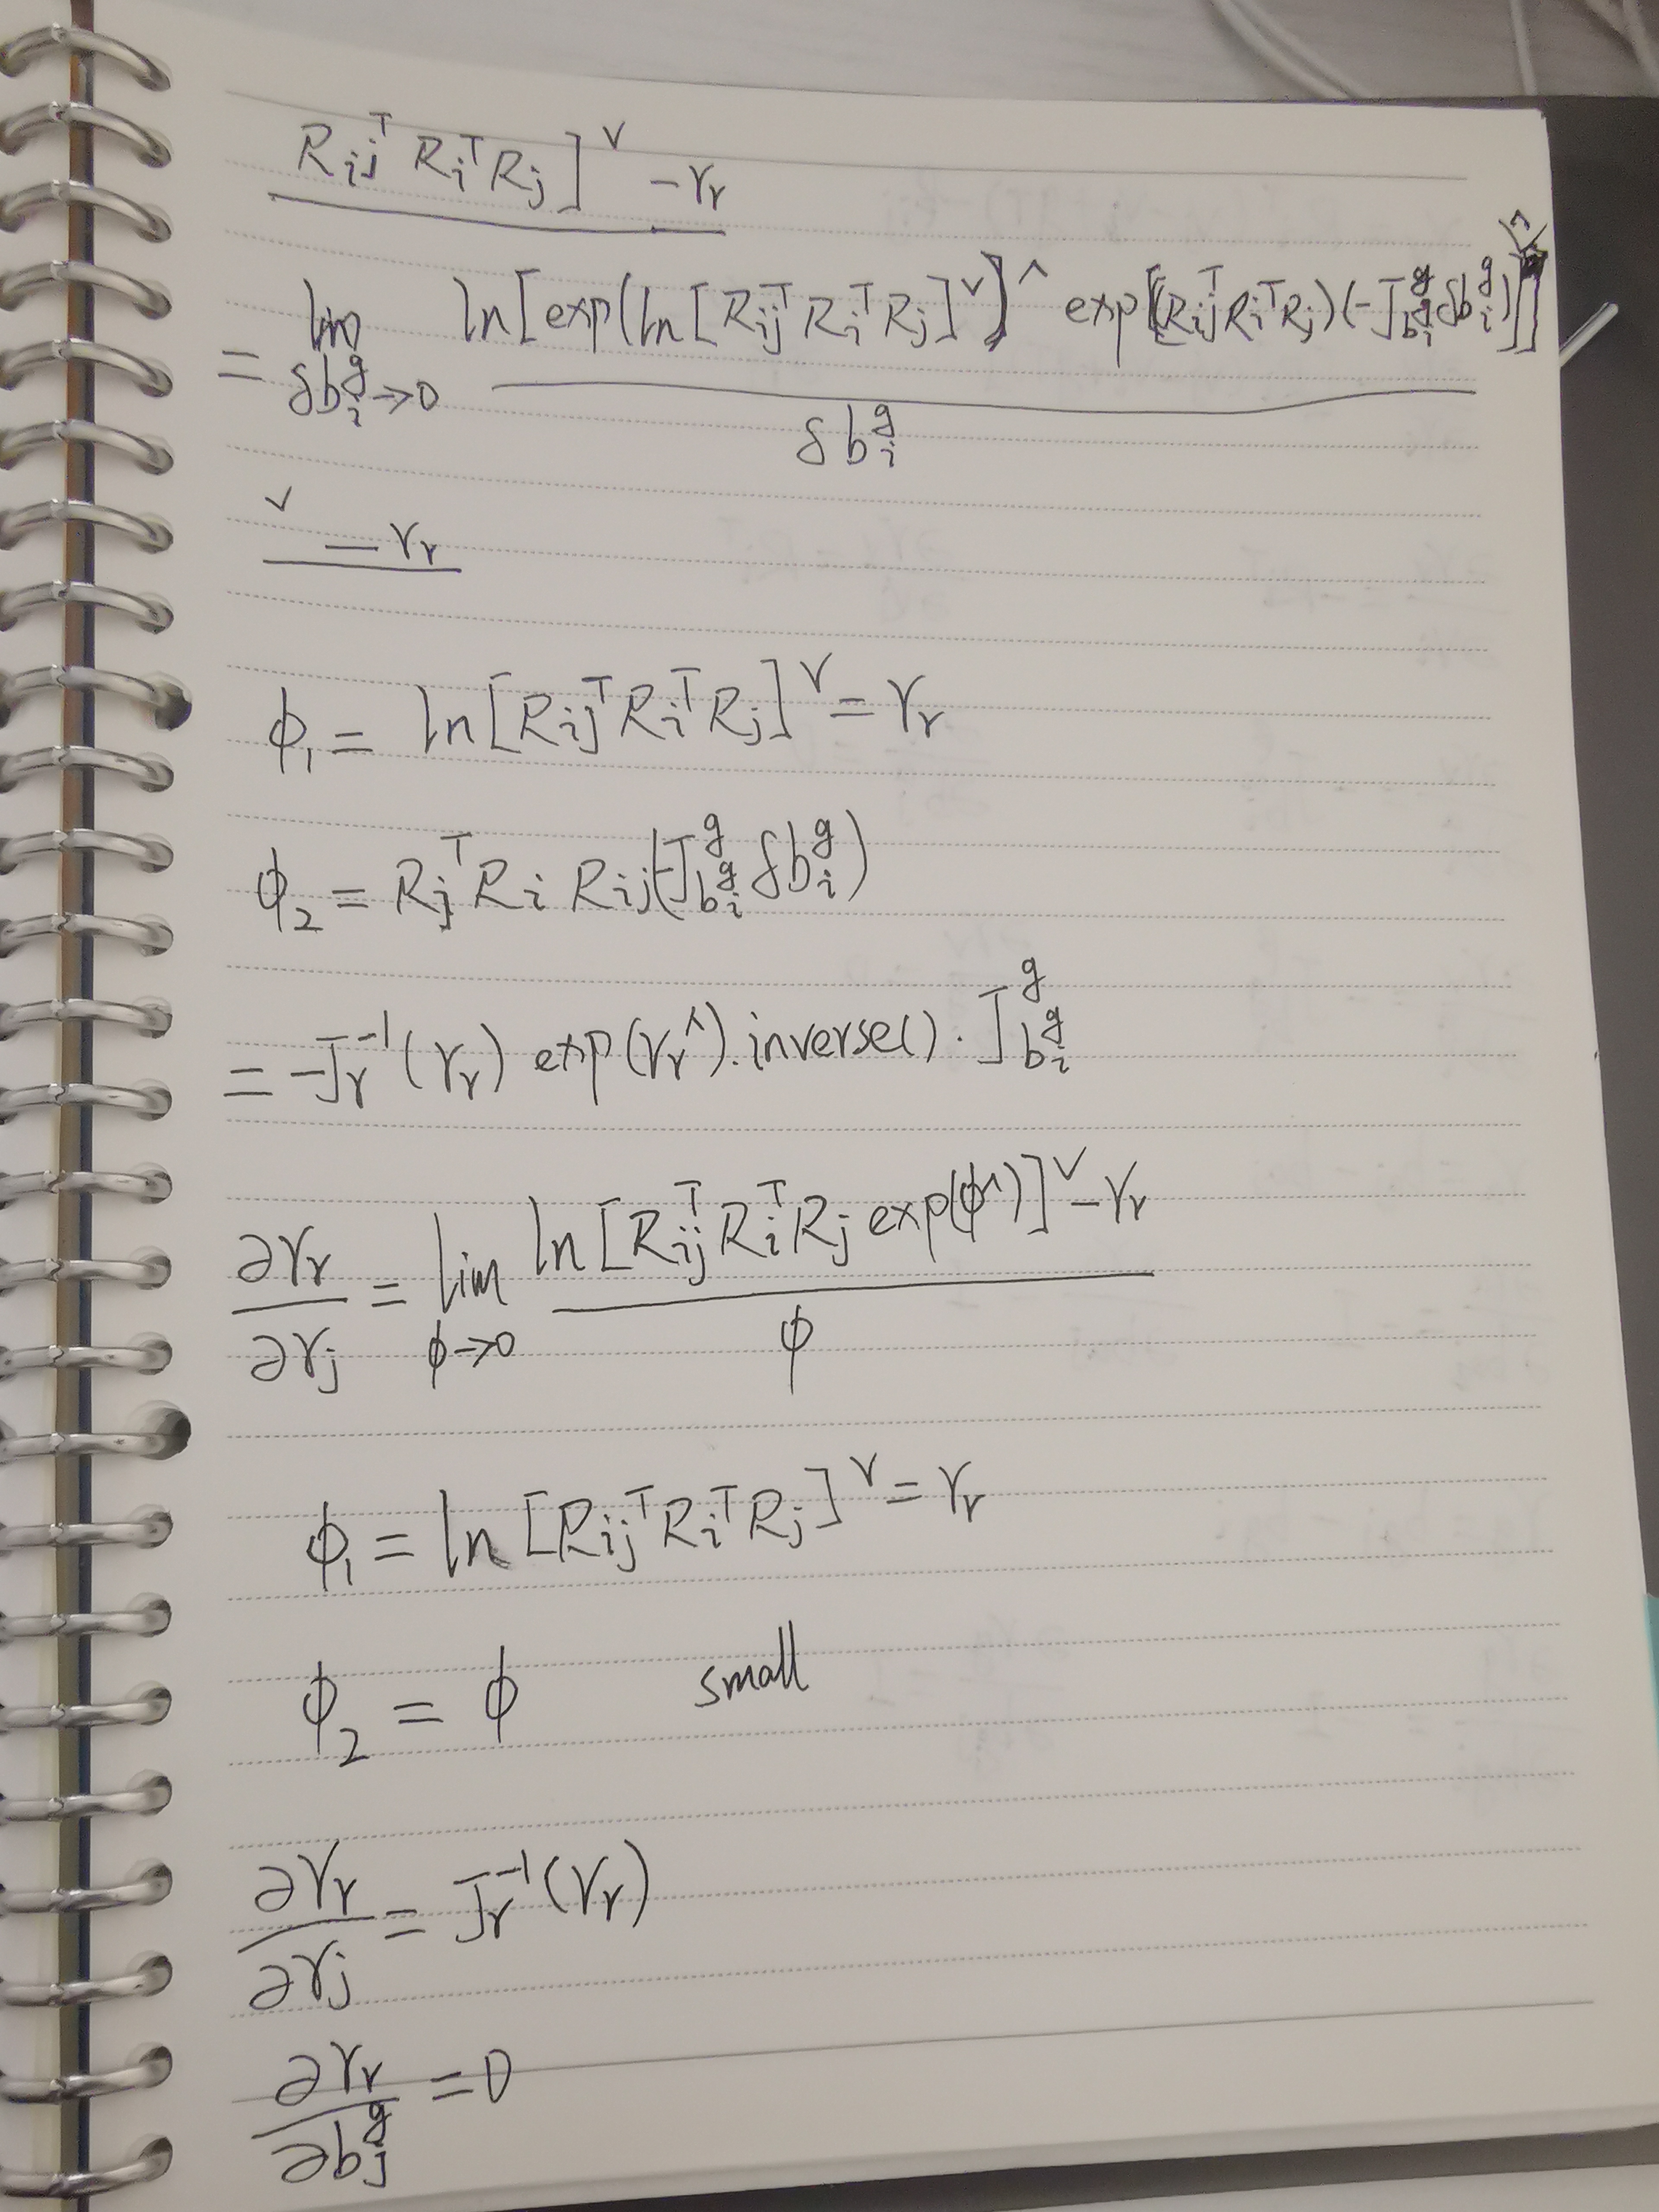 R_{ij}^T R_i^T R_j]^∨ - r_r
= lim_{δb_i^g→0} ln[exp(ln[R_{ij}^T R_i^T R_j]^∨)^∧ exp[(R_{ij}^T R_i^T R_j)(-J_{b_i^g}^g δb_i^g)]] / δb_i^g
^∨ - r_r
ϕ_1 = ln[R_{ij}^T R_i^T R_j]^∨ = r_r
ϕ_2 = R_j^T R_i R_{ij}(-J_{b_i^g}^g δb_i^g)
= -J_r^{-1}(r_r) exp(r_r^∧).inverse() · J_{b_i^g}^g
∂r_r/∂r_j = lim_{ϕ→0} ln[R_{ij}^T R_i^T R_j exp(ϕ^∧)]^∨ - r_r / ϕ
ϕ_1 = ln[R_{ij}^T R_i^T R_j]^∨ = r_r
ϕ_2 = ϕ small
∂r_r/∂r_j = J_r^{-1}(r_r)
∂r_r/∂b_j^g = 0